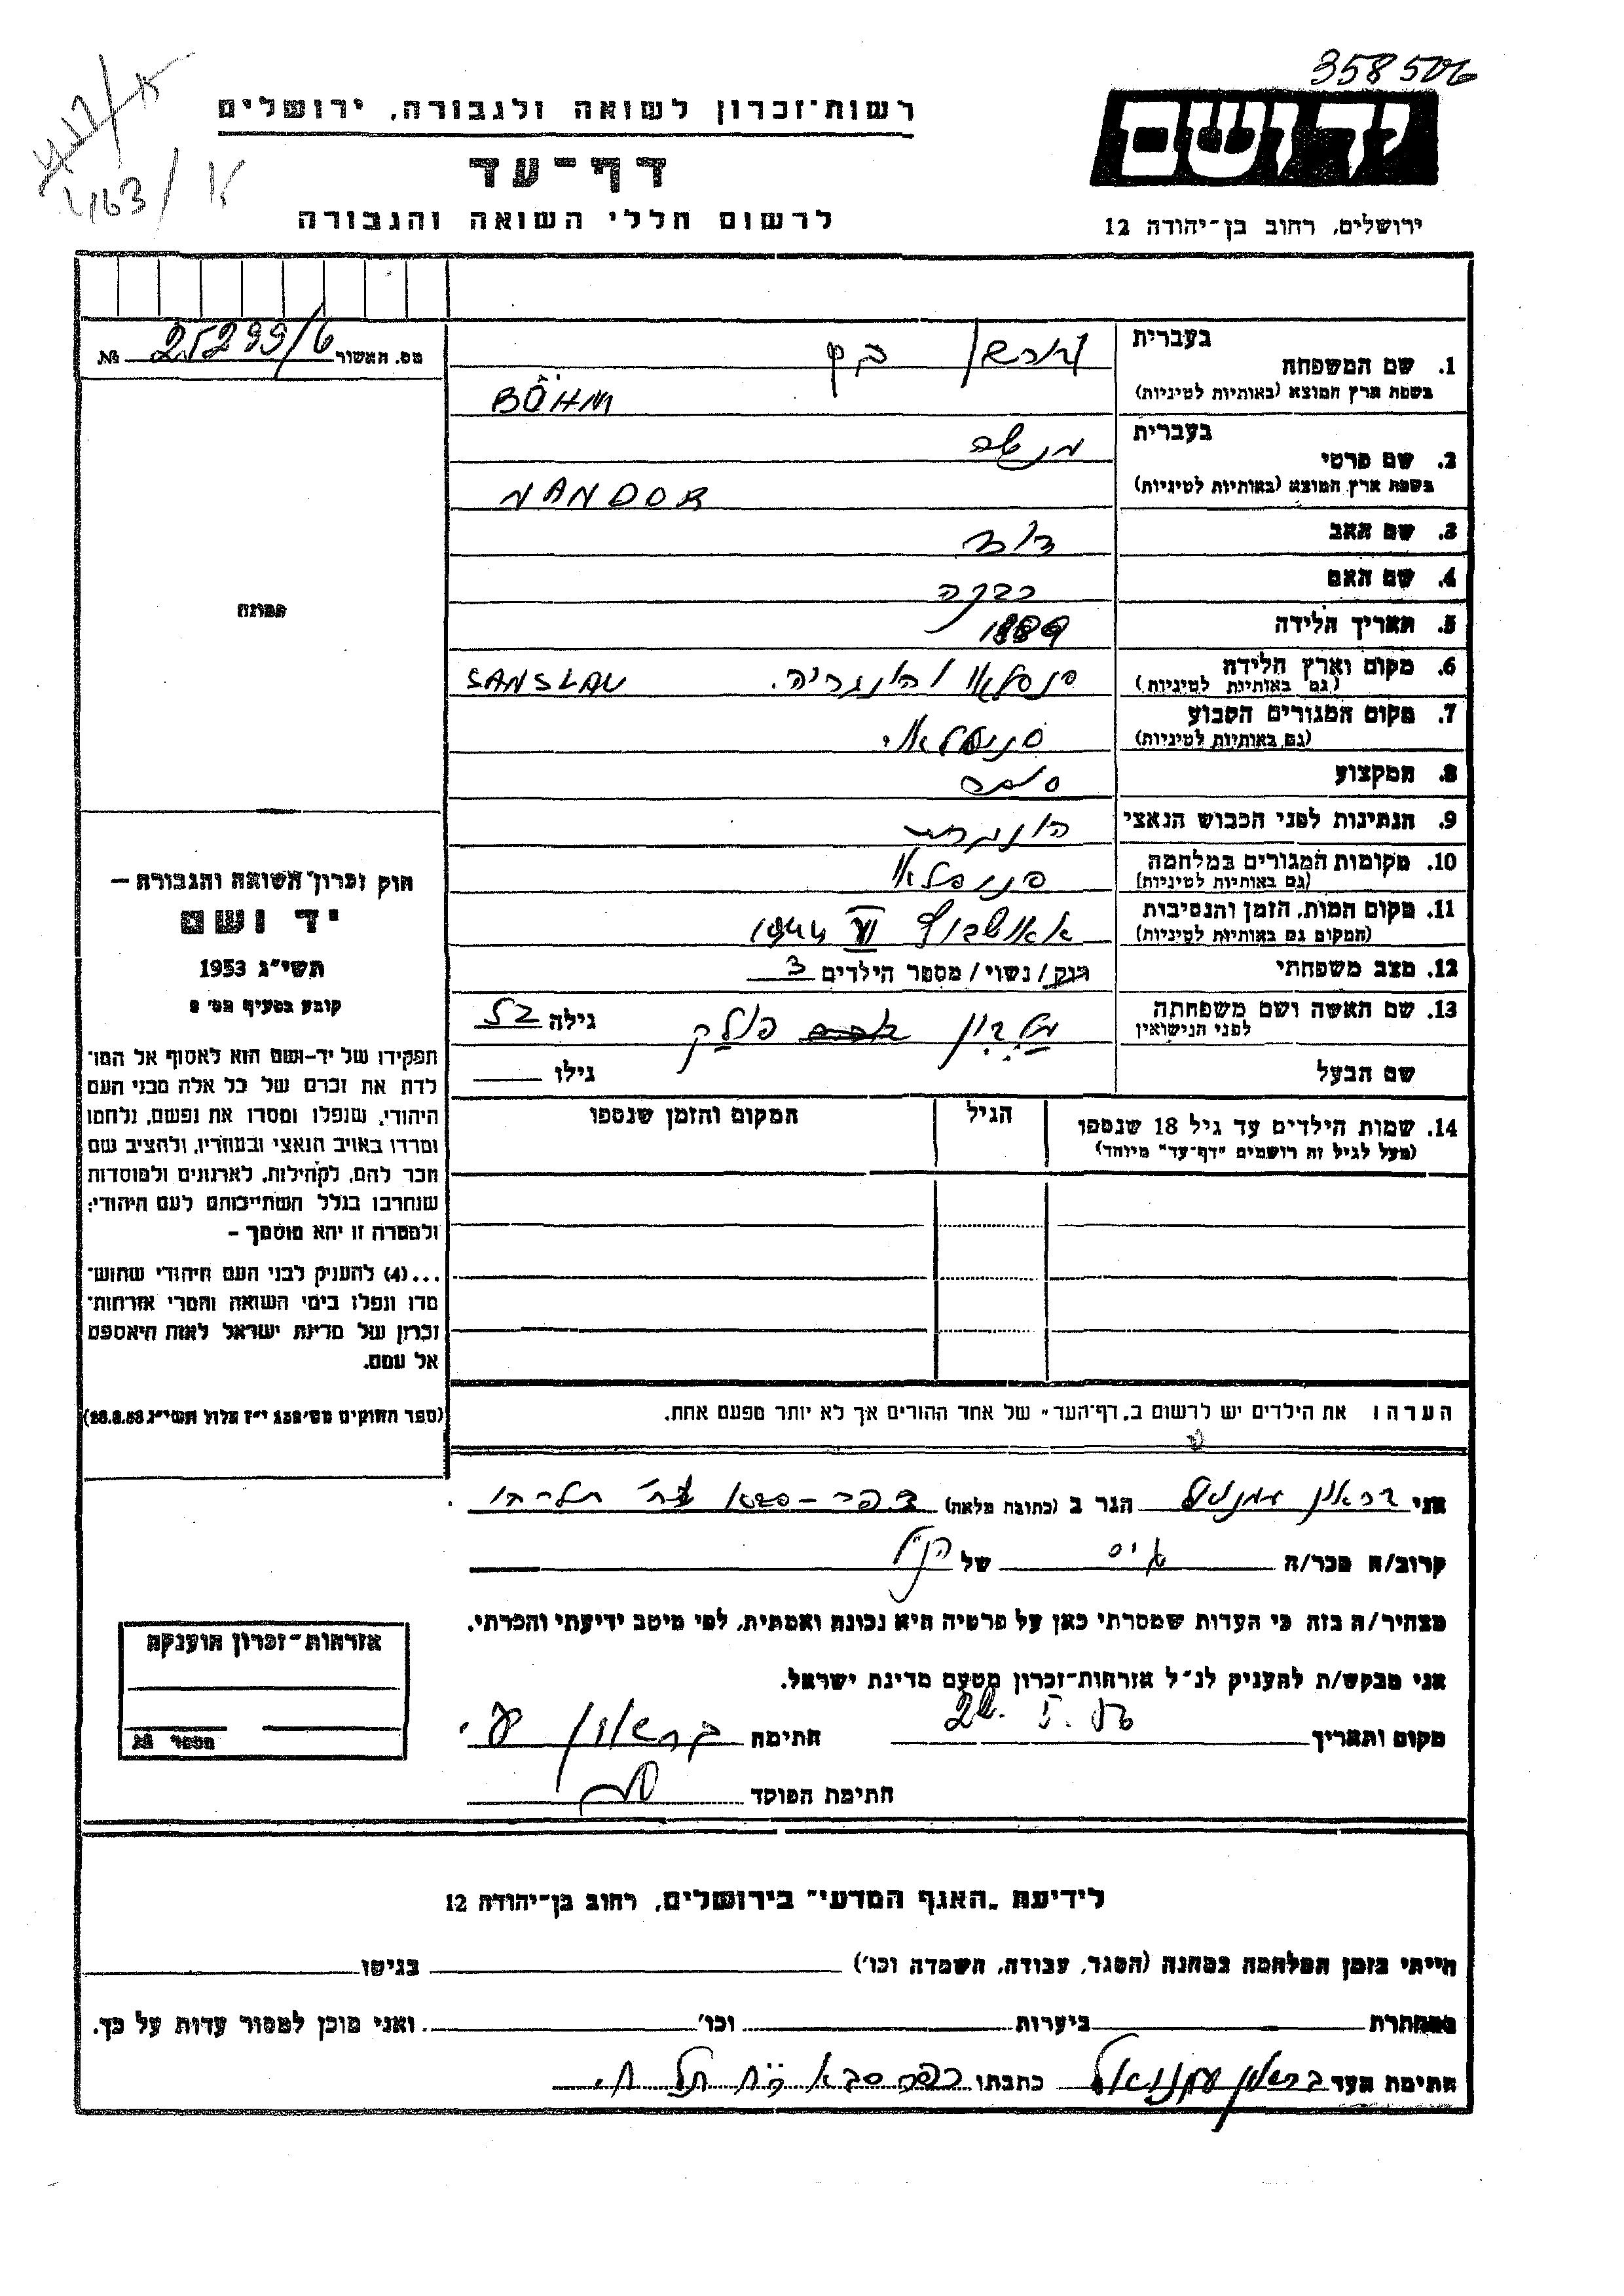 358506
רשות-זכרון לשואה ולגבורה, ירושלים
יד ושם
דף-עד
463/א
לרשום חללי השואה והגבורה
ירושלים, רחוב בן-יהודה 12
מס. האשור 25299/6 №
תמונה
חוק זכרון השואה והגבורה —
יד ושם
תשי"ג 1953
קובע בסעיף מס' 2
תפקידו של יד-ושם הוא לאסוף אל המו־
לדת את זכרם של כל אלה מבני העם
היהודי, שנפלו ומסרו את נפשם, נלחמו
ומרדו באויב הנאצי ובעוזריו, ולהציב שם
וזכר להם, לקהילות, לארגונים ולמוסדות
שנחרבו בגלל השתייכותם לעם היהודי;
ולמטרה זו יהא מוסמך —
...(4) להעניק לבני העם היהודי שהוש־
מדו ונפלו בימי השואה והמרי אזרחות־
זכרון של מדינת ישראל לאות היאספם
אל עמם.
(ספר החוקים מס' 132 י"ז אלול תשי"ג 28.8.53)
בעברית
1. שם המשפחה בהם
בשפת ארץ המוצא (באותיות לטיניות) BÖHM
בעברית
2. שם פרטי מנשה
בשפת ארץ המוצא (באותיות לטיניות) NANDOR
3. שם האב דוד
4. שם האם רבקה
5. תאריך הלידה 1889
6. מקום וארץ הלידה הונגריה. SANSLAU
(גם באותיות לטיניות)
7. מקום המגורים הקבוע
(גם באותיות לטיניות)
8. המקצוע סוחר
9. הנתינות לפני הכבוש הנאצי הונגרית
10. מקומות המגורים במלחמה
(גם באותיות לטיניות)
11. מקום המות, הזמן והנסיבות אאושביץ VI 1944
(המקום גם באותיות לטיניות)
12. מצב משפחתי רווק/נשוי/מספר הילדים 3
13. שם האשה ושם משפחתה פולק גילה 52
לפני הנישואין
שם הבעל גילו
14. שמות הילדים עד גיל 18 שנספו הגיל המקום והזמן שנספו
(מעל לגיל זה רושמים "דף-עד" מיוחד)
הערה: את הילדים יש לרשום ב"דף-העד" של אחד ההורים אך לא יותר מפעם אחת.
אני בראון עמנואל הגר ב (כתובת מלאה) כפר-סבא
קרוב/ה מכר/ה גיס של הנ"ל
מצהיר/ה בזה כי העדות שמסרתי כאן על פרטיה היא נכונה ואמתית, לפי מיטב ידיעתי והכרתי.
אני מבקש/ת להעניק לנ"ל אזרחות-זכרון מטעם מדינת ישראל.
מקום ותאריך חתימה בראון ע.
חתימת הפוקד
אזרחות-זכרון הוענקה
מספר
לידיעת "האגף המדעי" בירושלים, רחוב בן-יהודה 12
הייתי בזמן המלחמה במחנה (הסגר, עבודה, השמדה וכו') בגיטו
במחתרת ביערות וכו' ואני מוכן למסור עדות על כך.
חתימת העד בראון עמנואל כתבתו כפר סבא רח תל חי.